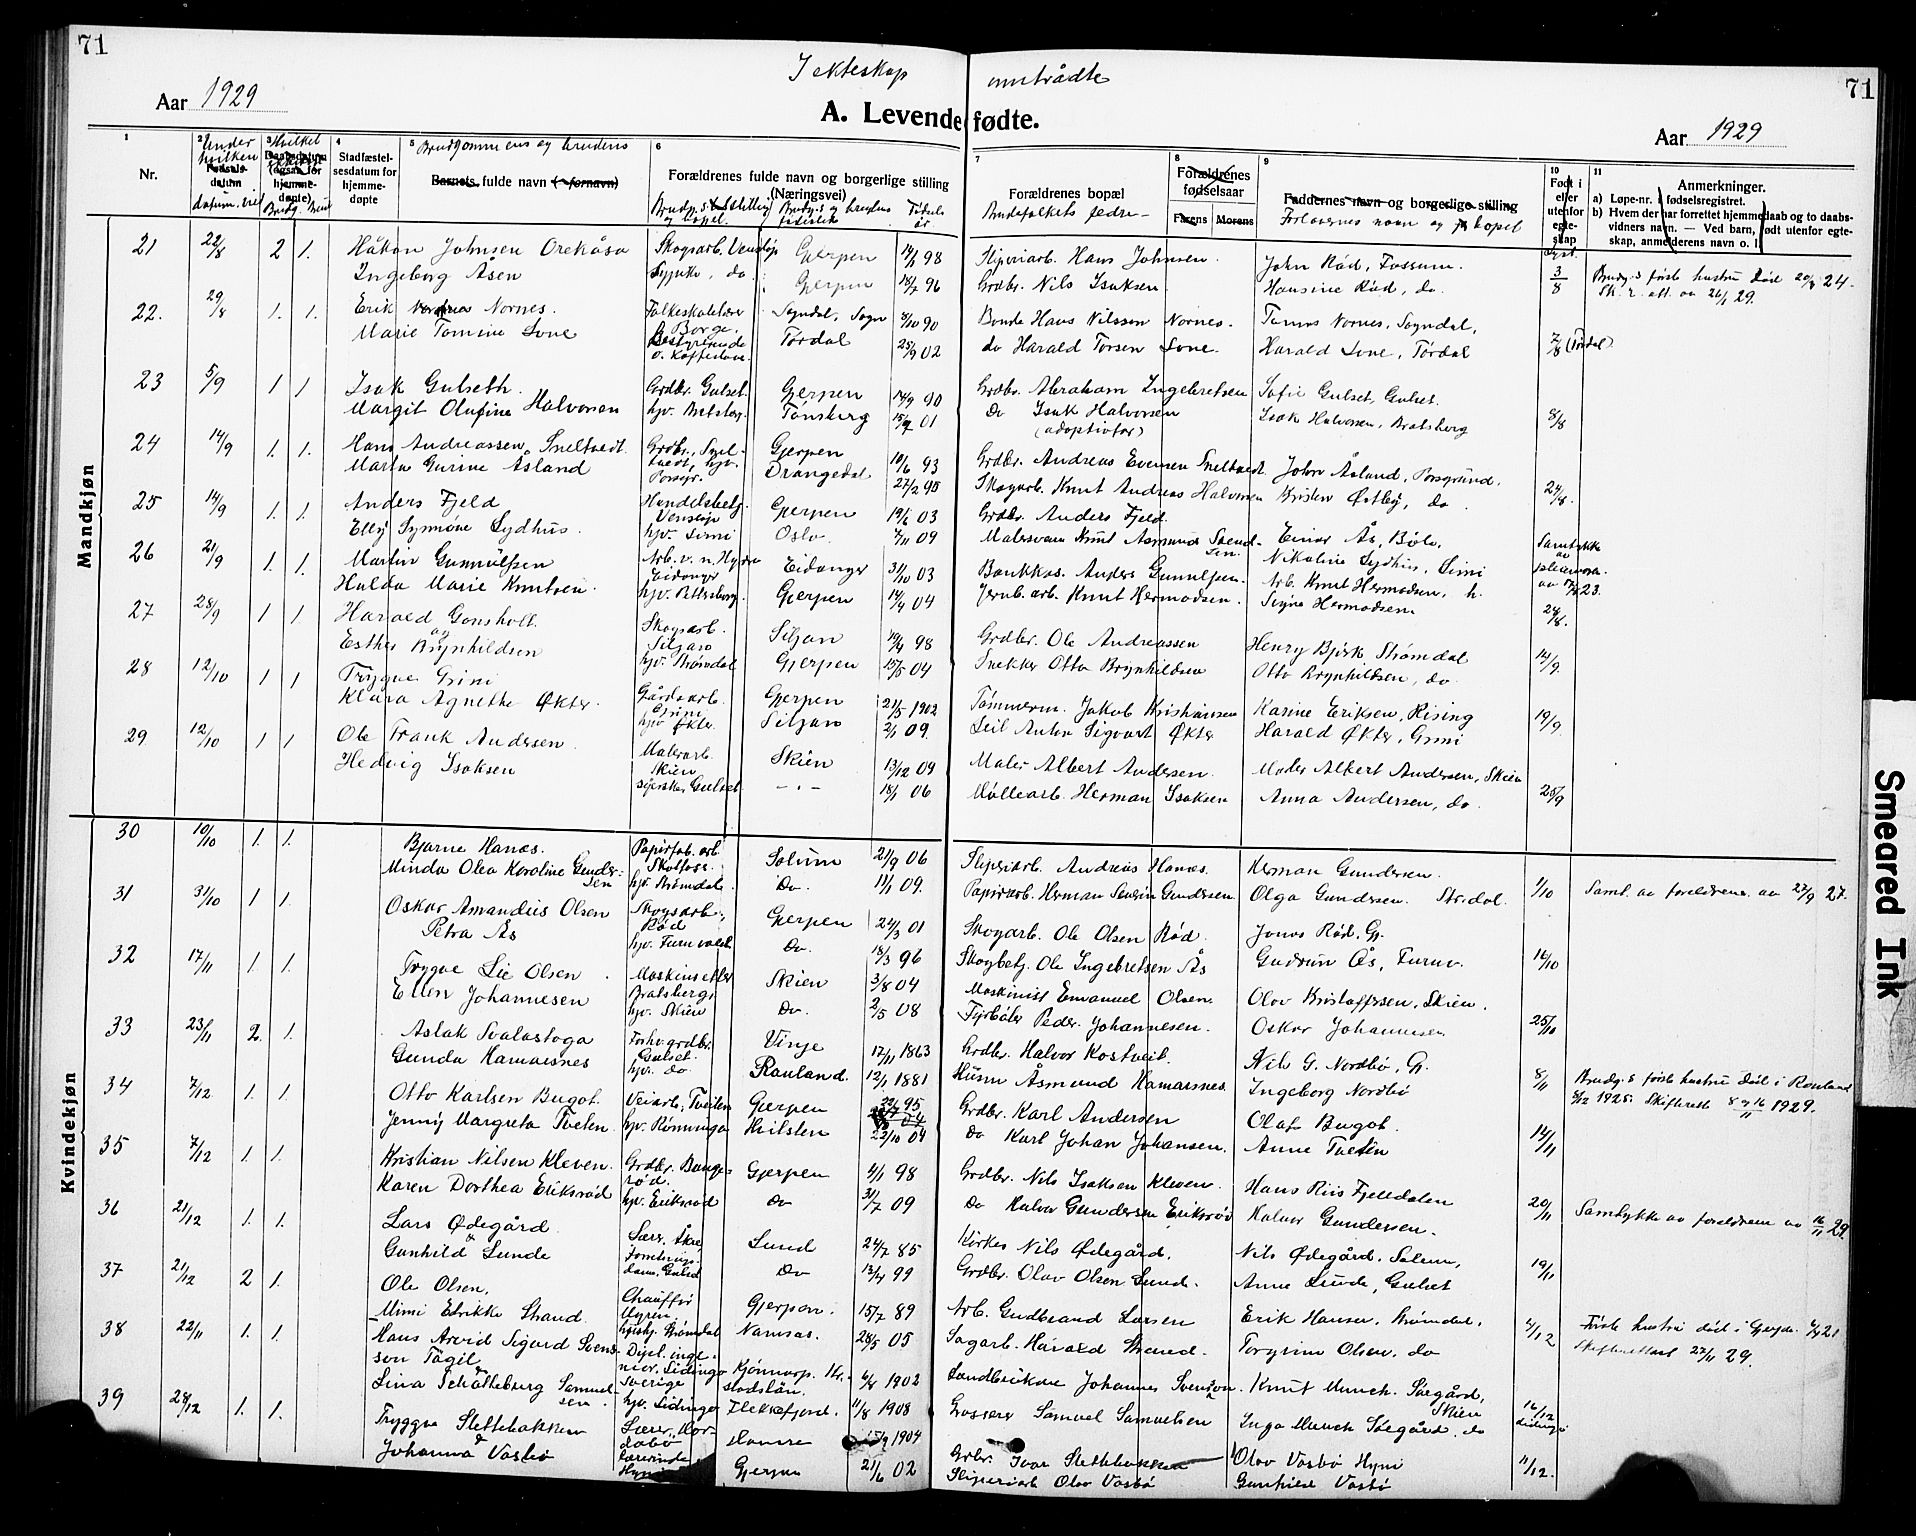 71
71
I ekteskap inntrådte
Aar 1929
A. Levende fødte.
Aar 1929
1 Nr.
2 Under hvilken Fødselsdatum datum, viet
3 Hvilket Daabsdatum (ogsaa for hjemmedøpte) Brudg. Brud
4 Stadfæstelsesdatum for hjemmedøpte
5 Brudgommens og brudens
Barnets fulde navn (fornavn)
6 Forældrenes fulde navn og borgerlige stilling (Næringsvei)
Brudg.s og brudens Fødsels år
7 Forældrenes bopæl
Brudefolkets fedre
8 Forældrenes fødselsaar
Farens Morens
9 Faddernes navn og borgerlige stilling
Forlovernes navn og bopel
10 Født i eller utenfor egteskap
11 Anmerkninger.
a) Løpe-nr. i fødselsregistret.
b) Hvem der har forrettet hjemmedaab og to daabsvidners navn. — Ved barn, født utenfor egteskap, anmelderens navn o. l.
Mandkjøn
21 22/8 2 1. Håkon Johnsen Orekåsa Skogsarb. Venstøp Gjerpen 14/1 98 Sliperiarb. Hans Johnsen. John Rød, Fossum. 3/8 Brudg.s første hustru død 20/4 24.
Ingeborg Åsen Sypike, do Gjerpen 18/2 96 Grdbr. Nils Isaksen Hansine Rød, do Sk. r. att. av 26/1 29.
22. 29/8 1. 1. Erik Nornes. Folkeskolelærer Borge. Sogndal, Sogn 3/10 90 Bonde Hans Nilssen Nornes. Tomas Nornes, Sogndal,
Marie Tomine Lone Bestyrerinde Tørdal 25/9 02 do Harald Torsen Lone. Harald Lone, Tørdal 7/8 (Tørdal)
23 5/9 1 1 Isak Gulseth. Grdbr. Gulset. Gjerpen 14/9 90 Grdbr. Abraham Ingebretsen Sofie Gulset, Gulset
Margit Olufine Halvorsen hjv. Bratsberg. Tønsberg 15/9 01 do Isak Halvorsen (adoptivfar) Isak Halvorsen, Bratsberg 8/8
24 14/9 1. 1. Hans Andreassen Sneltvedt. Grdbr., Sneltvedt, Gjerpen 10/6 93 Grdbr. Andreas Evensen Sneltvedt John Åsland, Porsgrund.
Marta Gurine Åsland hjv. Porsgr. Drangedal 27/2 95 Skogarb. Knut Andreas Halvorsen Kristen Østby, do 24/8.
25 14/9 1. 1. Anders Fjeld Handelsbetj. Venstøp Gjerpen 19/6 03 Grdbr. Anders Fjeld. Einar Ås, Bøle,
Elly Synnøve Lydhus. hjv. Limi Oslo 7/11 09 Malersvenn Knut Asmund Svendsen. Nikoline Lydhus, Limi Samtykke av 17/8 23.
26 21/9 1. 1. Martin Gunnulfsen Arb. v. n. Hydro Eidanger Eidanger 31/10 03 Baukkas. Anders Gunulfsen. Arb. Knut Hermodsen, h.
Hulda Marie Knutsen. hjv. Pettersborg. Gjerpen 14/4 04 Jernb. arb. Knut Hermodsen. Signe Hermodsen 24/8.
27 28/9 1 1 Harald Gonsholt. Skogsarb. Siljan Siljan 19/4 98 Grdbr. Ole Andreassen Henry Bjørk Strømdal
og
Esther Brynhildsen hjv. Strømdal Gjerpen 15/5 04 Snekker Otto Brynhildsen Otto Brynhildsen, do 14/9.
28 12/10 1 1 Trygve Grini Gårdsarb. Grini Gjerpen 21/5 1902 Tømmerm. Jakob Kristiansen Karine Eriksen, Rising
Klara Agnethe Økter. hjv Økter. Siljan 2/1 09. Leil. Anton Sigvart Økter Harald Økter, Grini 19/9
29 12/10 1 1 Ole Frank Andersen. Malerarb. Skien Skien 13/12 09 Maler Albert Andersen. Maler Albert Andersen, Skien
Hedvig Isaksen syerske, Gulset -"- 18/1 06 Møllearb. Herman Isaksen Anna Andersen, do 25/9
Kvindekjøn
30 10/10 1. 1. Bjarne Hanæs. Papirfab. arb. Skotfoss. Solum 21/9 06 Sliperiarb. Andreas Hanæs. Herman Gundersen.
Minda Olea Karoline Gundersen hjv. Strømdal. Do. 11/1 09. Papirarb. Herman Severin Gundersen. Olga Gundersen. Strdal. 1/10 Samt. av foreldrene av 27/9 27.
31 31/10 1 1. Oskar Amandus Olsen Skogsarb., Rød Gjerpen 24/3 01 Skogarb. Ole Olsen Rød. Jonas Rød, G.
Petra Ås hjv. Furuvald. Do. 18/3 96 Skogbetj. Ole Ingebretsen Ås Gudrun Ås, Furuv. 14/10
32 17/11 1. 1. Trygve Lie Olsen Maskinsetter Bratsberg. Skien 3/8 04 Maskinist Emanuel Olsen. Olav Kristoffersen, Skien.
Ellen Johannesen hjv. Skien Do. 2/5 08 Fyrbøter Peder Johannesen. Oskar Johannesen 25/10
33 23/11 2. 1. Aslak Svalastoga Forhv. grdbr. Gulset. Vinje 17/11 1863 Grdbr. Halvor Kostveit. Nils G. Nordbø, G.
Gunda Hamarsnes hjv. do Rauland. 12/1 1881 Husm Åsmund Hamarsnes. Ingeborg Nordbø 8/11 Brudg.s første hustru død i Rauland 8/12 1925. Skifterett 8 og 16/11 1929.
34 7/12 1. 1. Otto Karlsen Bugot. Veiarb., Tveiten Gjerpen 95 Grdbr. Karl Andersen Olaf Bugot.
Jenny Margreta Tveten. hjv. Rønningen Hvitsten 22/10 04 do Karl Johan Johansen. Anne Tveten 14/11
35 7/12 1. 1. Kristian Nilsen Kleven. Grdbr. Bangerød. Gjerpen 4/1 98 Grdbr. Nils Isaksen Kleven. Hans Riis Fjelldalen
Karen Dorthea Eriksrød hjv. Eriksrød do 31/7 09 do Halvor Gundersen Eriksrød Halvor Gundersen. 20/11 Samtykke av foreldrene av 16/11 29.
36 21/12 1. 1. Lars Ødegård. Lær. Åkre Lund 24/7 85 Kirkes. Nils Ødegård. Nils Ødegård. Solum,
&
Gunhild Lunde Gulset Do 13/4 99 Grdbr. Olav Olsen Lund. Anne Lunde, Gulset 19/11
37 21/12 2 1. Ole Olsen. Chauffør Gjerpen. 15/7 89 Arb. Gudbrand Larsen Erik Hansen, Strømdal,
Mimi Elrikke Strand. Strømdal Namsos. 28/5 05 Sagarb. Harald Strand. Torgrim Olsen, do 4/12 Første hustru død i Gjerpen 21 Skifterettsatt. 27/11 29.
38 22/11 1. 1. Hans Arvid Sigurd Svensson Tägil Dipl. ingeniør. Lidingö Sverige 6/8 1902 Landbrukare Johannes Svensson. Knut Munch. Søegård, Skien
&
Lina Schølleborg Samuelsen. hjv. Lidingö Flekkefjord. 11/8 1908 Grosserer Samuel Samuelsen Inga Munch Søegård, do 16/12 Lidingö
39 28/12 1. 1. Tryggve Slettebakken Lærer, 15/9 1904 Grbr. Ivar Slettebakken Olav Vasbø Hyni
&
Johanna Vasbø Lærerinde Hyni Gjerpen 21/6 02 Sliperiarb Olav Vasbø Gunhild Vasbø 11/12.
Smeared Ink